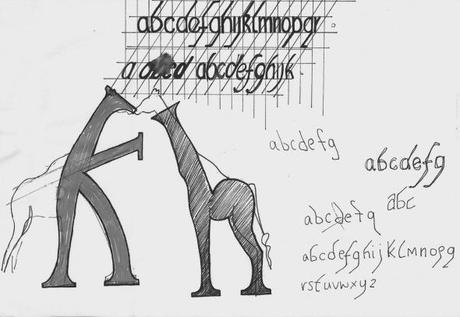 abcdefghijklmnopqr
a abcdefghijk
K
abcdefg
abcdefg
abc
abcdefg
abcdefghijklmnopq
rstuvwxyz